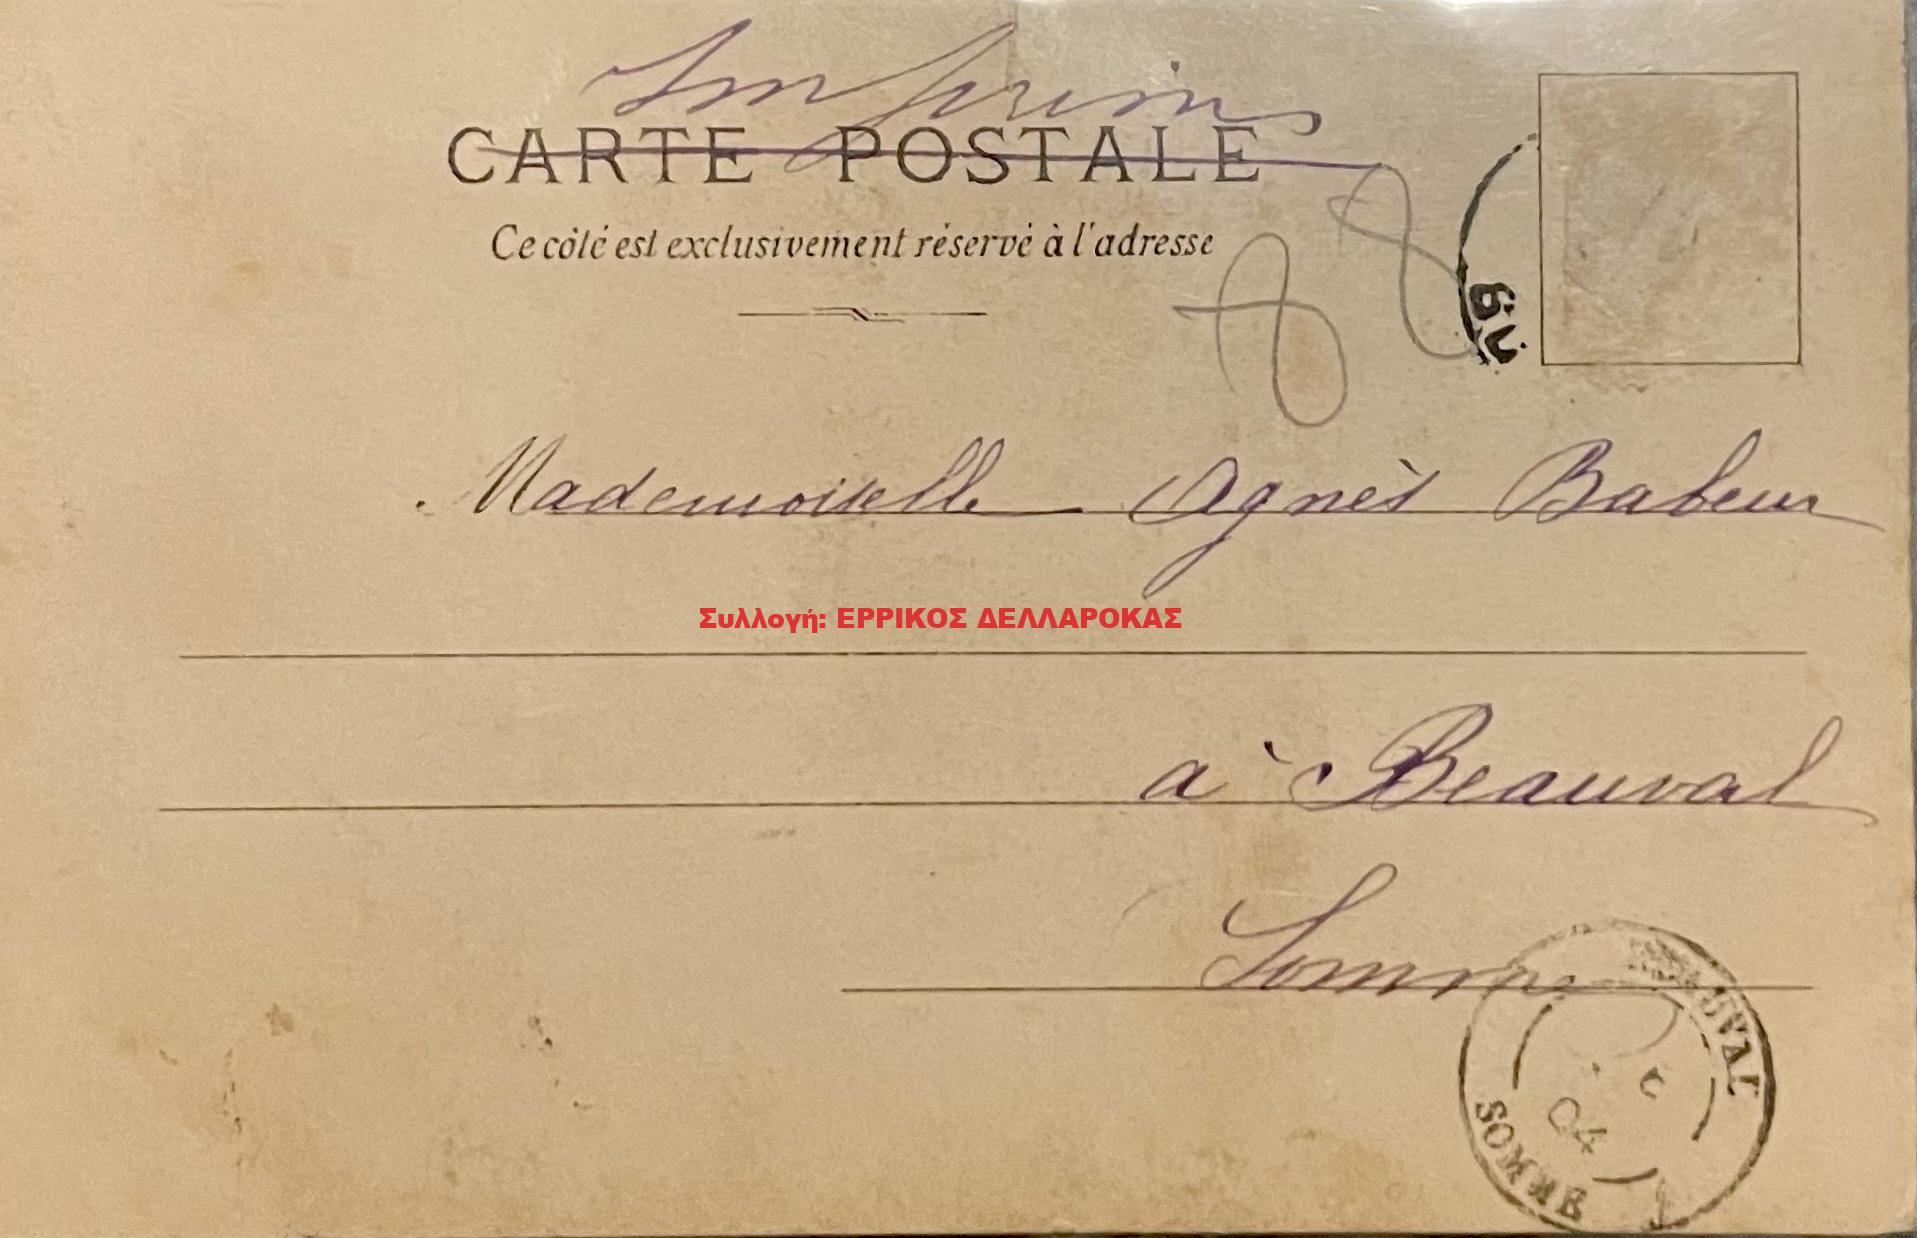 Imprimés
CARTE POSTALE
Ce côté est exclusivement réservé à l'adresse
88
Mademoiselle Agnès Babeur
Συλλογή: ΕΡΡΙΚΟΣ ΔΕΛΛΑΡΟΚΑΣ
à Beauval
Somme
BEAUVAL
04
SOMME